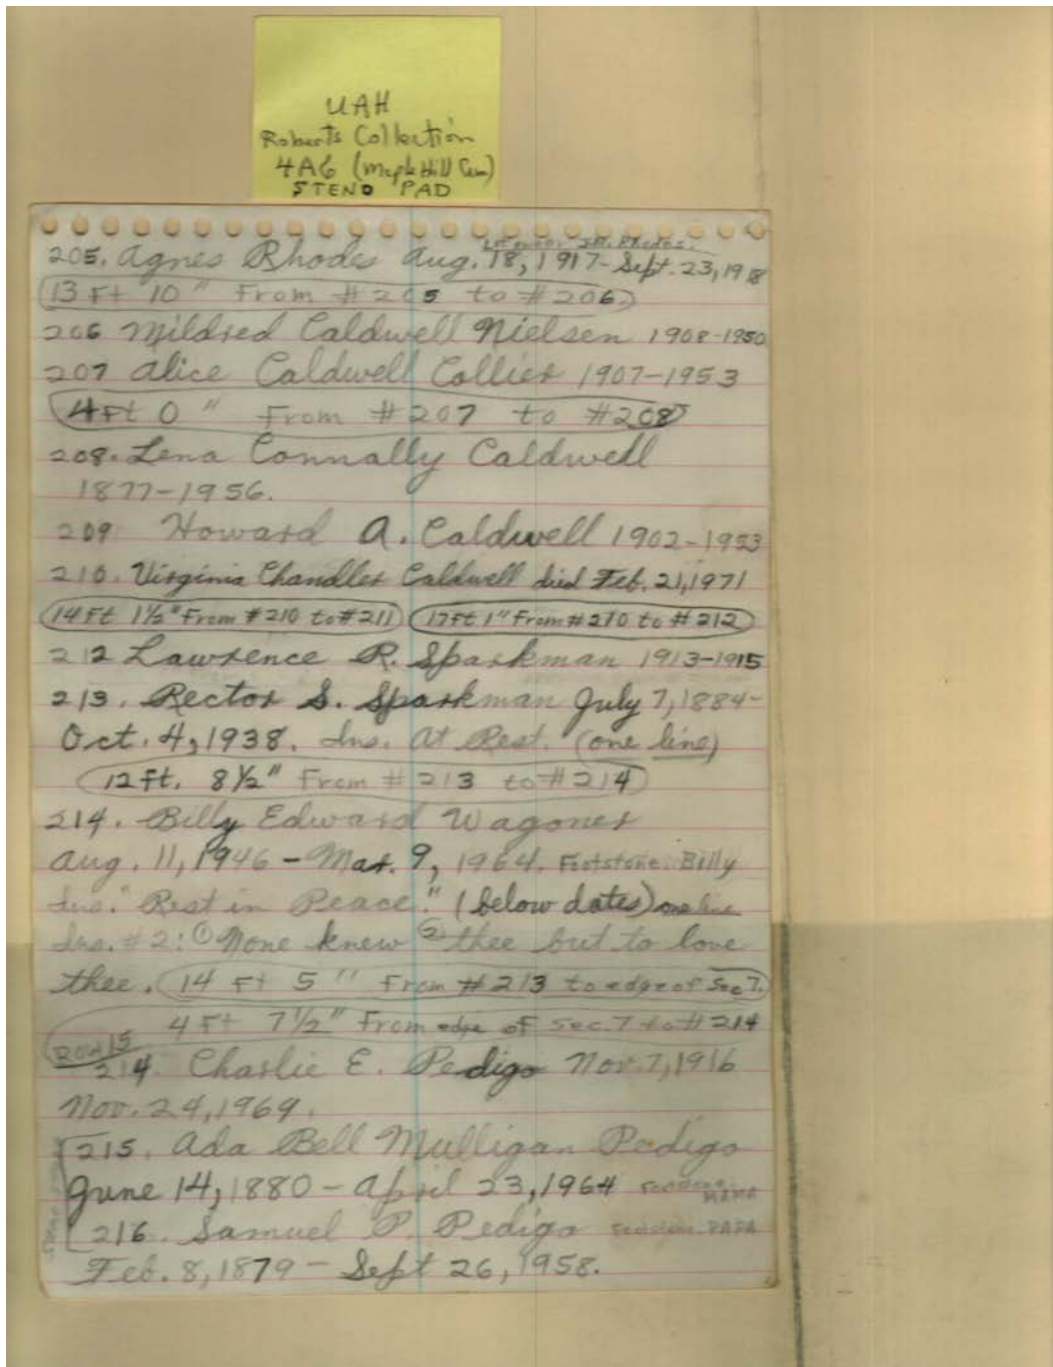 UAH
Roberts Collection
4A6 (Maple Hill Cem)
STENO PAD
Lot owner J.M. Rhodes.
205. Agnes Rhodes Aug. 18, 1917- Sept. 23, 1918
13 Ft 10" From #205 to #206
206 Mildred Caldwell Nielsen 1908-1950
207 Alice Caldwell Collier 1907-1953
4Ft 0" From #207 to #208
208. Lena Connally Caldwell
1877-1956.
209 Howard A. Caldwell 1902-1953
210. Virginia Chandler Caldwell died Feb. 21, 1971
14 Ft 1½" From #210 to #211 17Ft 1" From #210 to #212
212 Lawrence R. Sparkman 1913-1915
213. Rector S. Sparkman July 7, 1884-
Oct. 4, 1938. Ins. At Rest. (one line)
12 Ft. 8½" From #213 to #214
214. Billy Edward Wagoner
Aug. 11, 1946 - Mar. 9, 1964. Footstone: Billy
Ins. "Rest in Peace." (below dates) one line
Ins. #2: ① None knew ② thee but to love
thee. 14 Ft 5" From #213 to edge of Sec 7.
4 Ft 7½" From edge of Sec. 7 to #214
Row 15
214. Charlie E. Pedigo Nov. 7, 1916
Nov. 24, 1969.
215. Ada Bell Mulligan Pedigo
June 14, 1880 - April 23, 1964 MAMA
216. Samuel P. Pedigo PAPA
Feb. 8, 1879 - Sept 26, 1958.